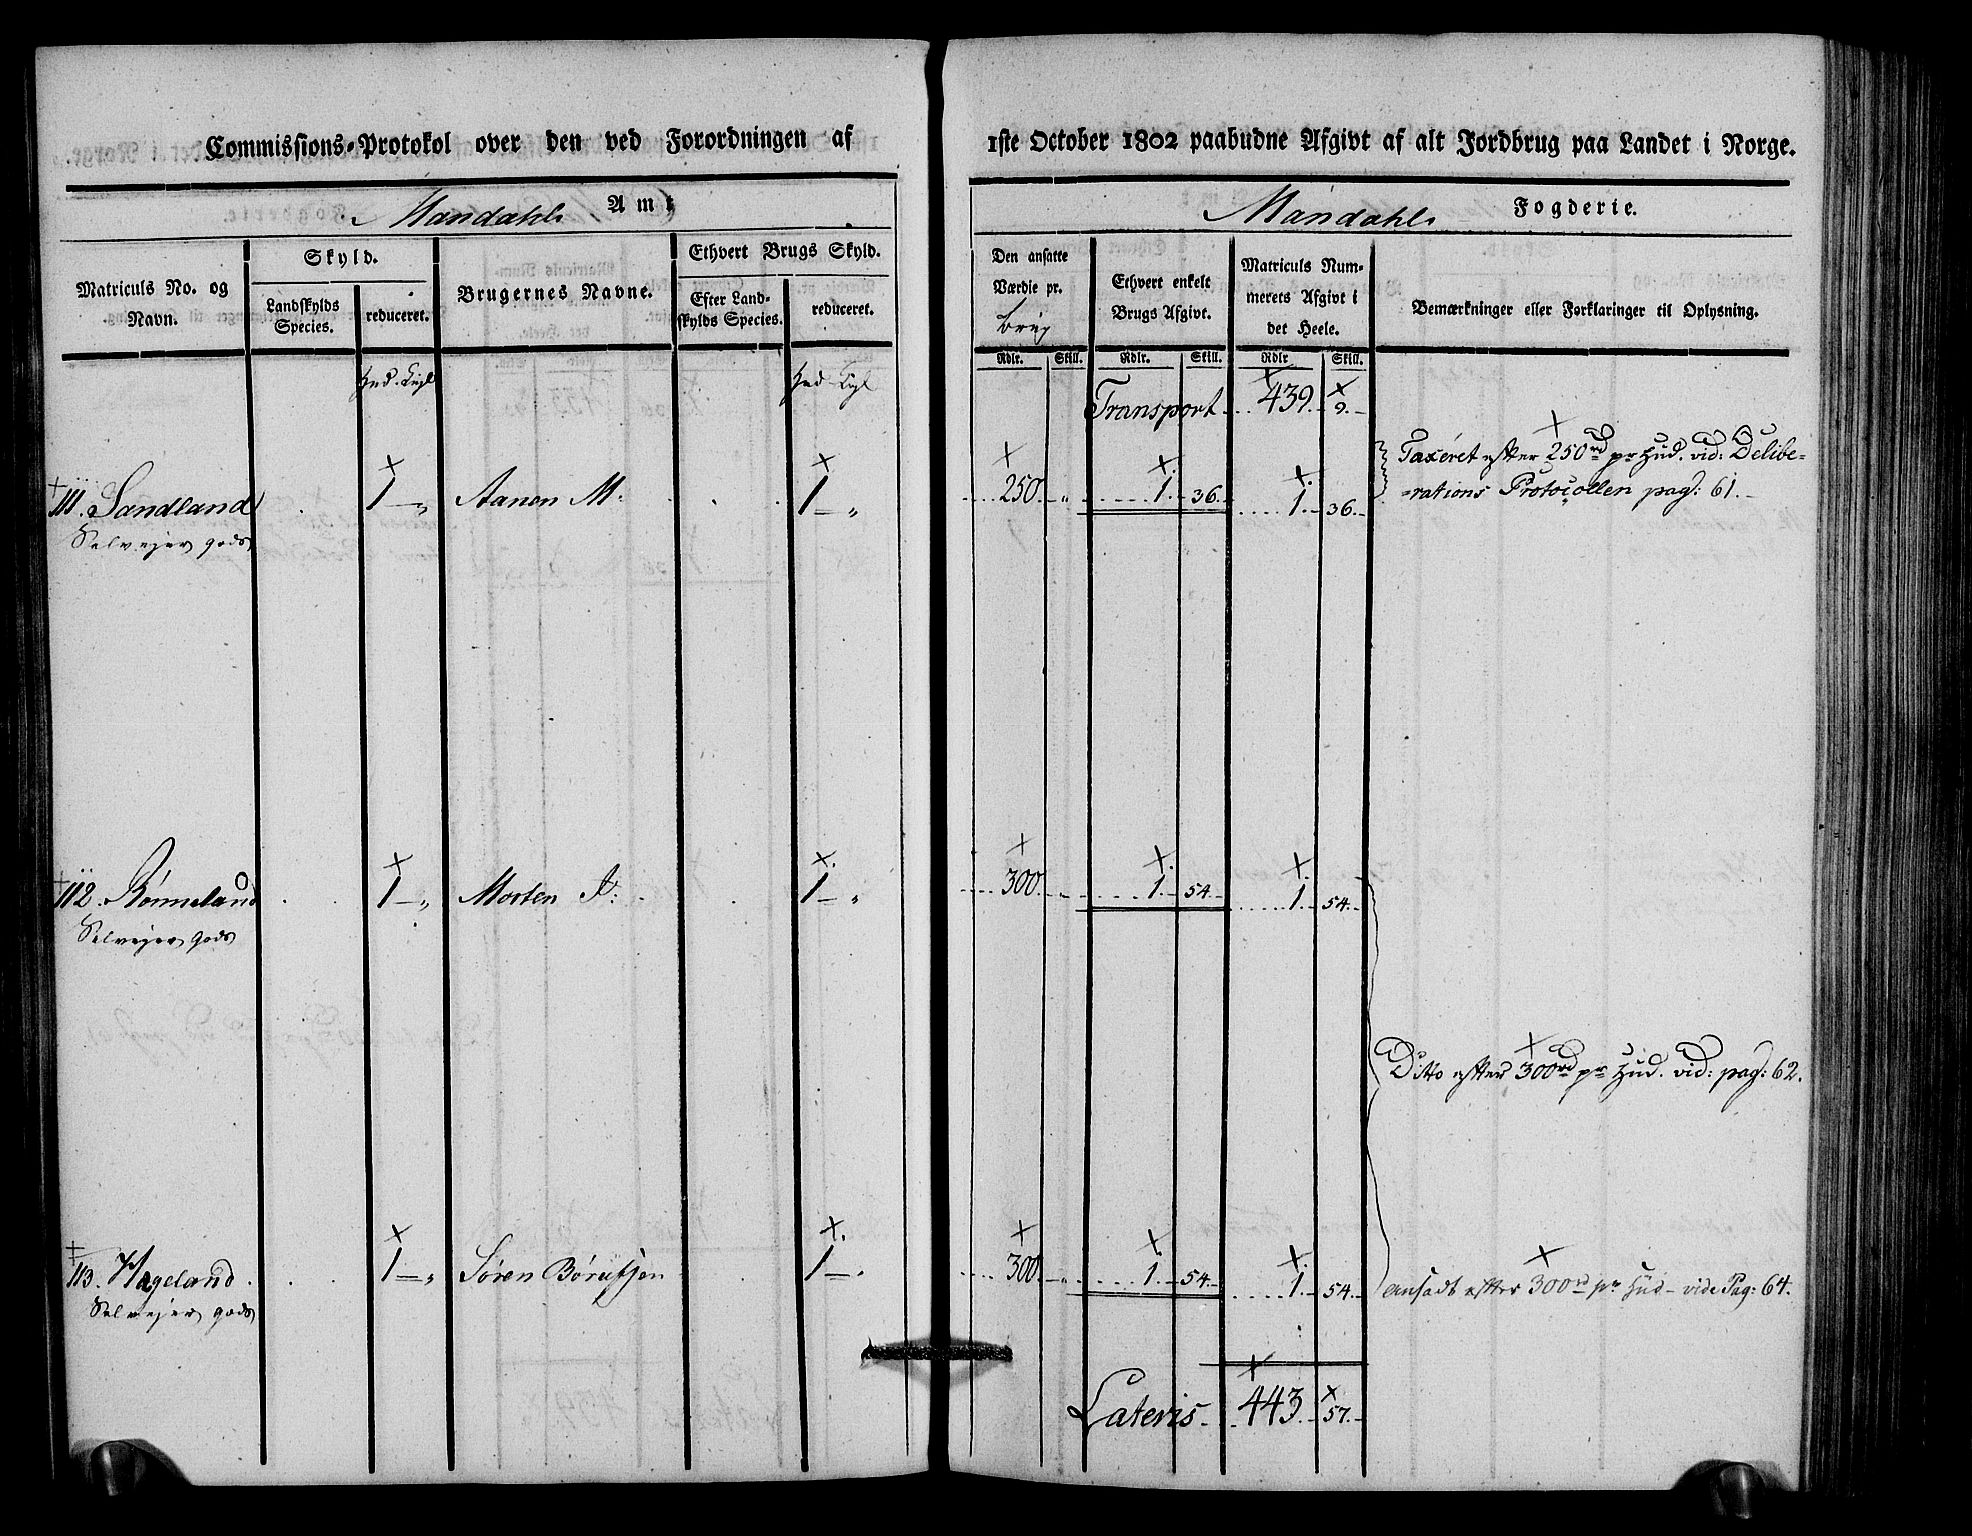 Commissions-Protokol over den ved Forordningen af 1ste October 1802 paabudne Afgivt af alt Jordbrug paa Landet i Norge.
Mandahls Amt
Mandahls Fogderie.
Matriculs No. og Navn.
Skyld.
Landskylds Species.
reduceret.
Brugernes Navne.
Ethvert Brugs Skyld.
Efter Landskylds Species.
reduceret.
Den ansatte Værdie pr. brug
Ethvert enkelt Brugs Afgivt.
Matriculs Nummerets Afgivt i det Heele.
Bemærkninger eller Forklaringer til Oplysning.
Rdlr. Skill. Rdlr. Skill. Rdlr Skill.
Hud. Hud
Transport 439. 9.
111. Sandland 1 „ Aanon 1 „ 250. „ 1. 36. 1. 36.
Selvejer gods
Taxeret efter 250rd pr Hud. vid: Delibe=
=rations Protocollen pag: 61.
112. Rönneland 1 „ Morten 1 „ 300. „ 1. 54. 1. 54.
Selvejer gods
Ditto efter 300rd pr Hud. vid: pag: 62.
113. Hageland 1 „ Sören 1 300. „ 1. 54. 1. 54.
Selvejer gods
ansadt efter 300rd pr Hud - vide Pag: 64.
Lateris 443. 57.